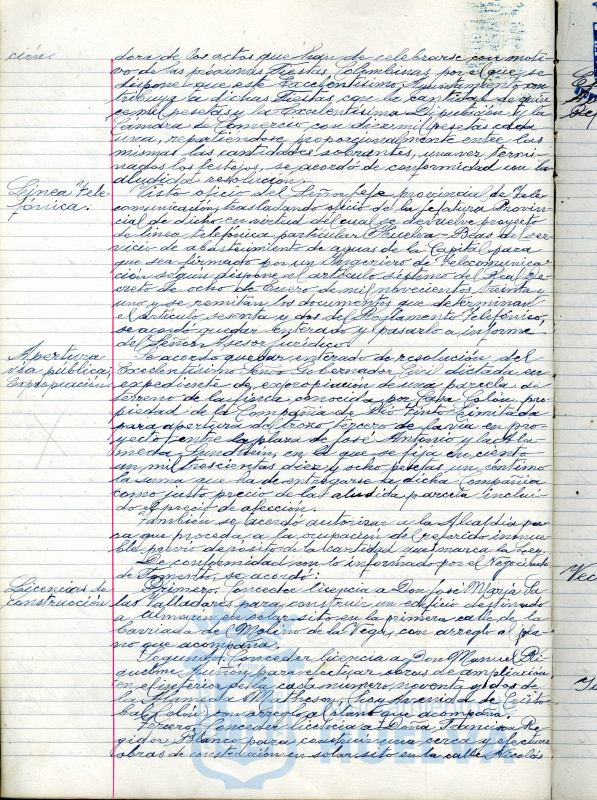 ción.
dora de los actos que han de celebrarse con moti-
vo de las próximas Fiestas Colombinas por el que se
dispone que este Excelentísimo Ayuntamiento con
tribuya a dichas Fiestas, con la cantidad de quin
ce mil pesetas y la Excelentísima Diputación y la
Cámara de Comercio, con diez mil pesetas cada
una, repartiéndose proporcionalmente entre las
mismas las cantidades sobrantes, una vez termi-
nados los festejos, se acordó de conformidad con la
aludida resolución.
Línea Tele-
fónica.
Visto oficio del Señor Jefe provincial de Tele-
comunicación trasladando oficio de la Jefatura Provin-
cial de dicho en virtud del cual se devuelve proyecto
de línea telefónica particular Huelva-Beas del ser-
vicio de abastecimiento de aguas de la Capital, para
que sea firmado por un Ingeniero de Telecomunica-
ción según dispone el artículo séptimo del Real De-
creto de ocho de Enero de mil novecientos treinta y
uno y se remitan los documentos que determinan
el Artículo sesenta y dos del Reglamento Telefónico,
se acordó quedar enterado y pasarlo a informe
del Señor Asesor Jurídico.
Apertura
vía pública,
Expropiación.
Se acordó quedar enterado de resolución del
Excelentísimo Señor Gobernador Civil dictada en
expediente de expropiación de una parcela de
terreno de la finca, conocida por Casa Colón, pro-
piedad de la Compañía de Río Tinto Limitada
para apertura del trozo tercero de la vía en pro-
yecto entre la plaza de José Antonio y la Ala-
meda Sundheim, en la que se fija en ciento
un mil trescientas diez y ocho pesetas un céntimo
la suma que ha de entregarse a dicha Compañía
como justo precio de la aludida parcela inclui-
do el precio de afección.
También se acordó autorizar a la Alcaldía pa-
ra que proceda a la ocupación del referido inmue-
ble previo depósito de la cantidad que marca la Ley.
De conformidad con lo informado por el Negociado
de Fomento, se acordó:
Licencias de
construcción
Primero. Conceder licencia a Don José María Sa-
las Valladares para construir un edificio destinado
a almacén en solar sito en la primera calle de la
barriada de Molino de la Vega, con arreglo al pla-
no que acompaña.
Segundo. Conceder licencia a Don Manuel Ri-
quelme para efectuar obras de ampliación
en el interior de la casa número noventa y dos de
con arreglo al plano que acompaña.
Tercero. Conceder licencia a Doña Francisca Re-
gidor Blanco para construir una cerca y efectuar
obras de construcción en solar sito en la calle Nicolás
Vec